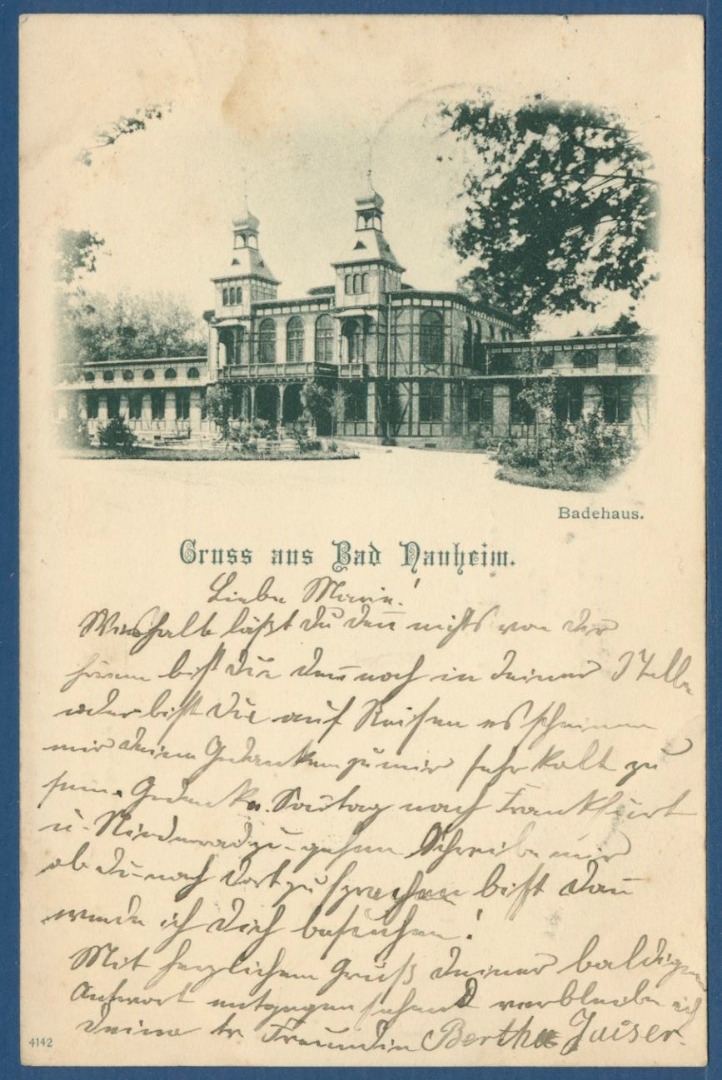 Badehaus.
Gruss aus Bad Nauheim.
Liebe Marie!
Weshalb läßt du den nichts von dir
hören bist du den noch in deiner Stelle
oder bist du auf Reisen es scheinen
mir deine Gedanken zu mir sehr kalt zu
sein. Gedenke Sontag nach Frankfurt
u. Niederrad zu gehen Schreibe mir
ob du noch dort zu sprechen bist dan
werde ich dich besuchen!
Mit herzlichem Gruß deiner baldigen
Antwort entgegen sehend verbleibe ich
deine tr. Freundin Bertha
4142